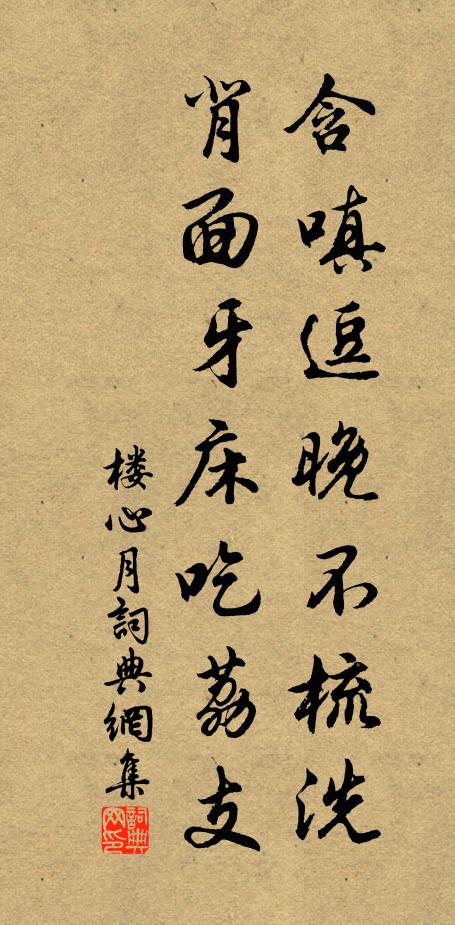 含嗔逗晚不梳洗
背面牙床吃荔支
楼心月詞典網集
詞典網印